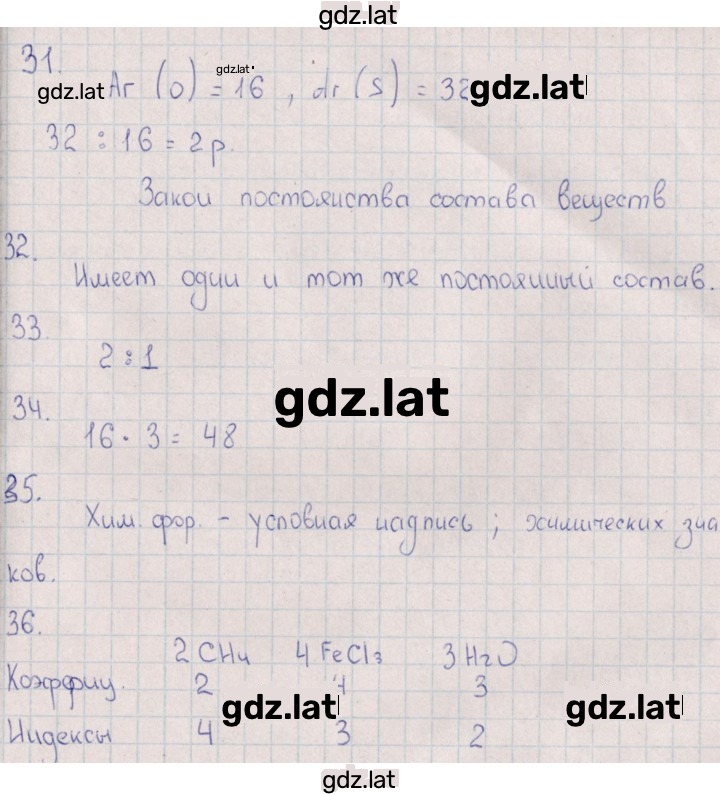 gdz.lat
31.
gdz.lat Ar (O) = 16 , Ar (S) = 32 gdz.lat
gdz.lat
32 : 16 = 2 р.
Закон постоянства состава веществ
32.
Имеет один и тот же постоянный состав.
33
2 : 1
gdz.lat
34.
16 · 3 = 48
35.
Хим. фор. - условная надпись ; химических зна
ков.
36.
2 CH4 4 FeCl3 3 H2O
Коэффиц. 2 4 3
gdz.lat gdz.lat
Индексы 4 3 2
gdz.lat